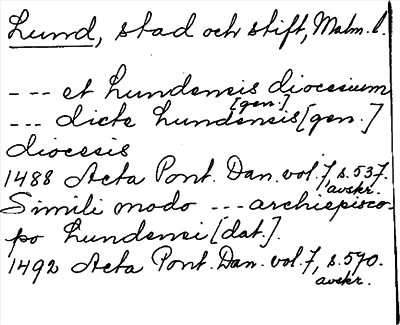 Lund, stad och stift, Malm. l.
--- et Lundensis diocesium
[gen.]
--- dicte Lundensis [gen.]
diocesis
1488 Acta Pont. Dan. vol. 7, s. 537.
avskr.
Simili modo --- archiepisco-
po Lundensi [dat.].
1492 Acta Pont. Dan. vol. 7, s. 590.
avskr.